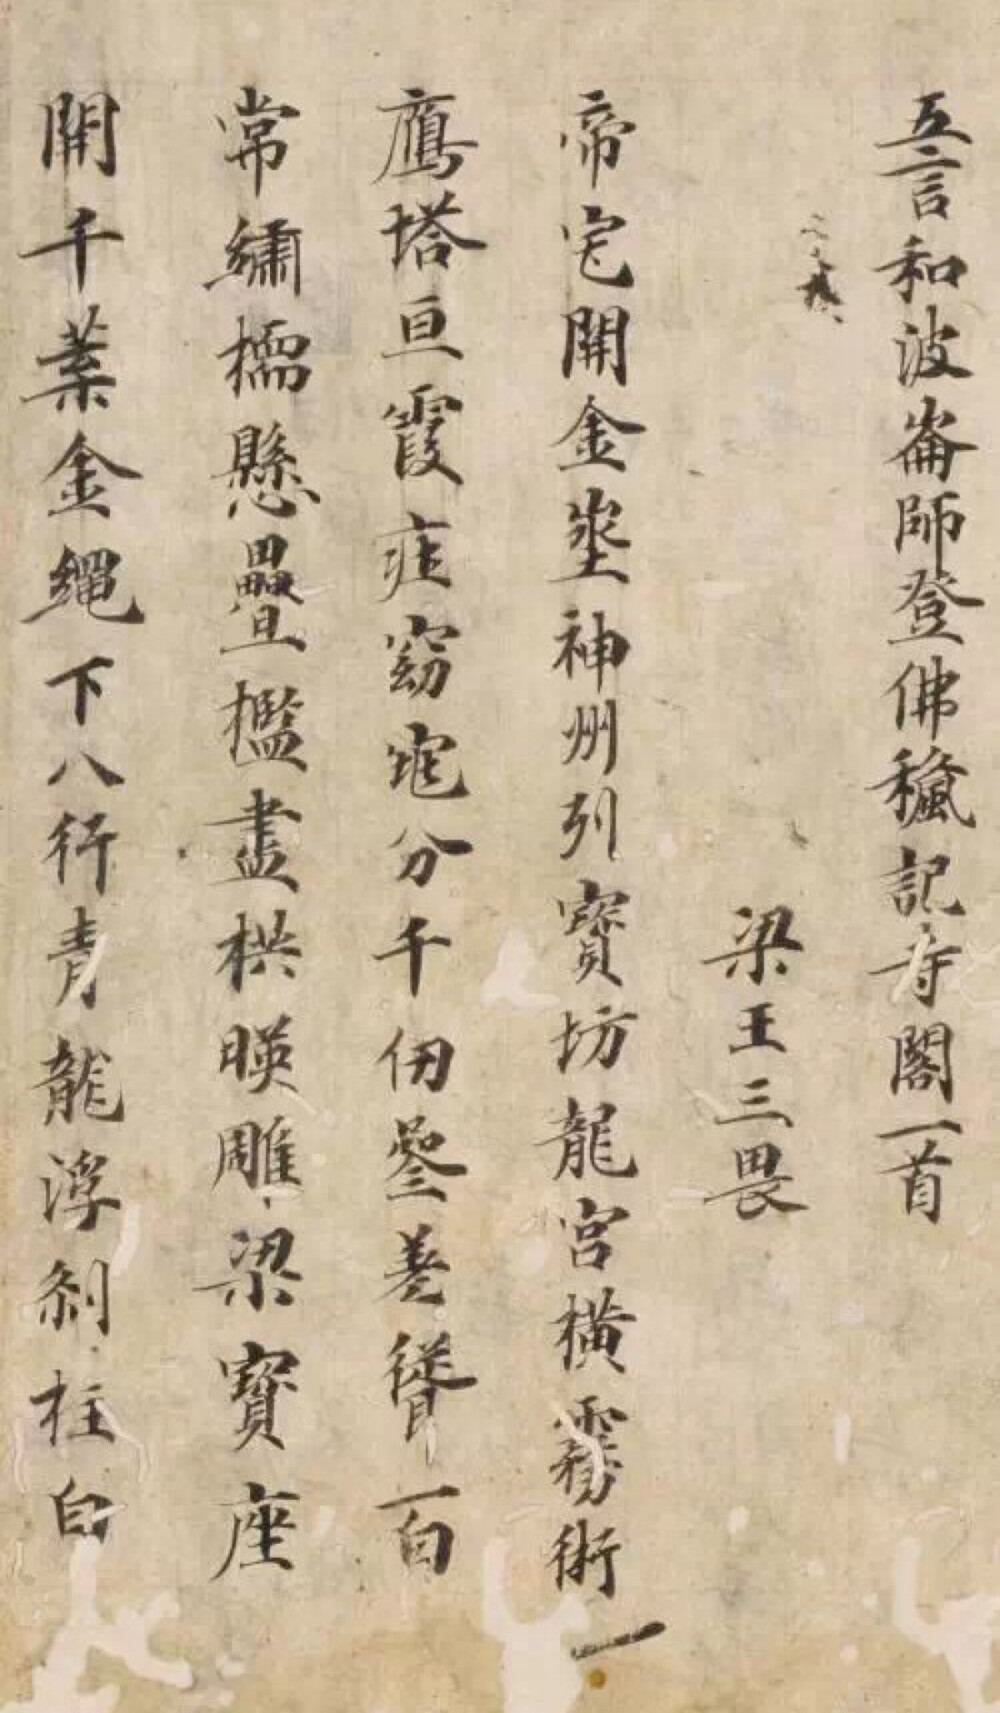 五言和波崙師登佛穐記寺閣一首
梁王三畏
帝宅開金埊神州列寶坊龍宮橫霧術一
鴈塔亘霞疰窈窕分千仞叅差聳一百
常繡櫺懸疊檻畫栱暎雕梁寶座
開千葉金繩下八行青龍浮刹柱白